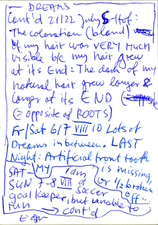 — DREAMS
Cont'd 21|22 July
The coloration (bland)
Of my hair was VERY MUCH
visible b/c my hair grew
at its End: The dam of my
natural hair grew longer &
longer at its END
(= opposite of ROOTS)
Fr/Sat 6/7 VIII 10 Lots of
Dreams in between. LAST
Night: Artificial front tooth
SAT- MY is missing
SUN 7-8 VIII I am or 1/2 broken
a soccer off...
goal keeper, but unable to
run cont'd